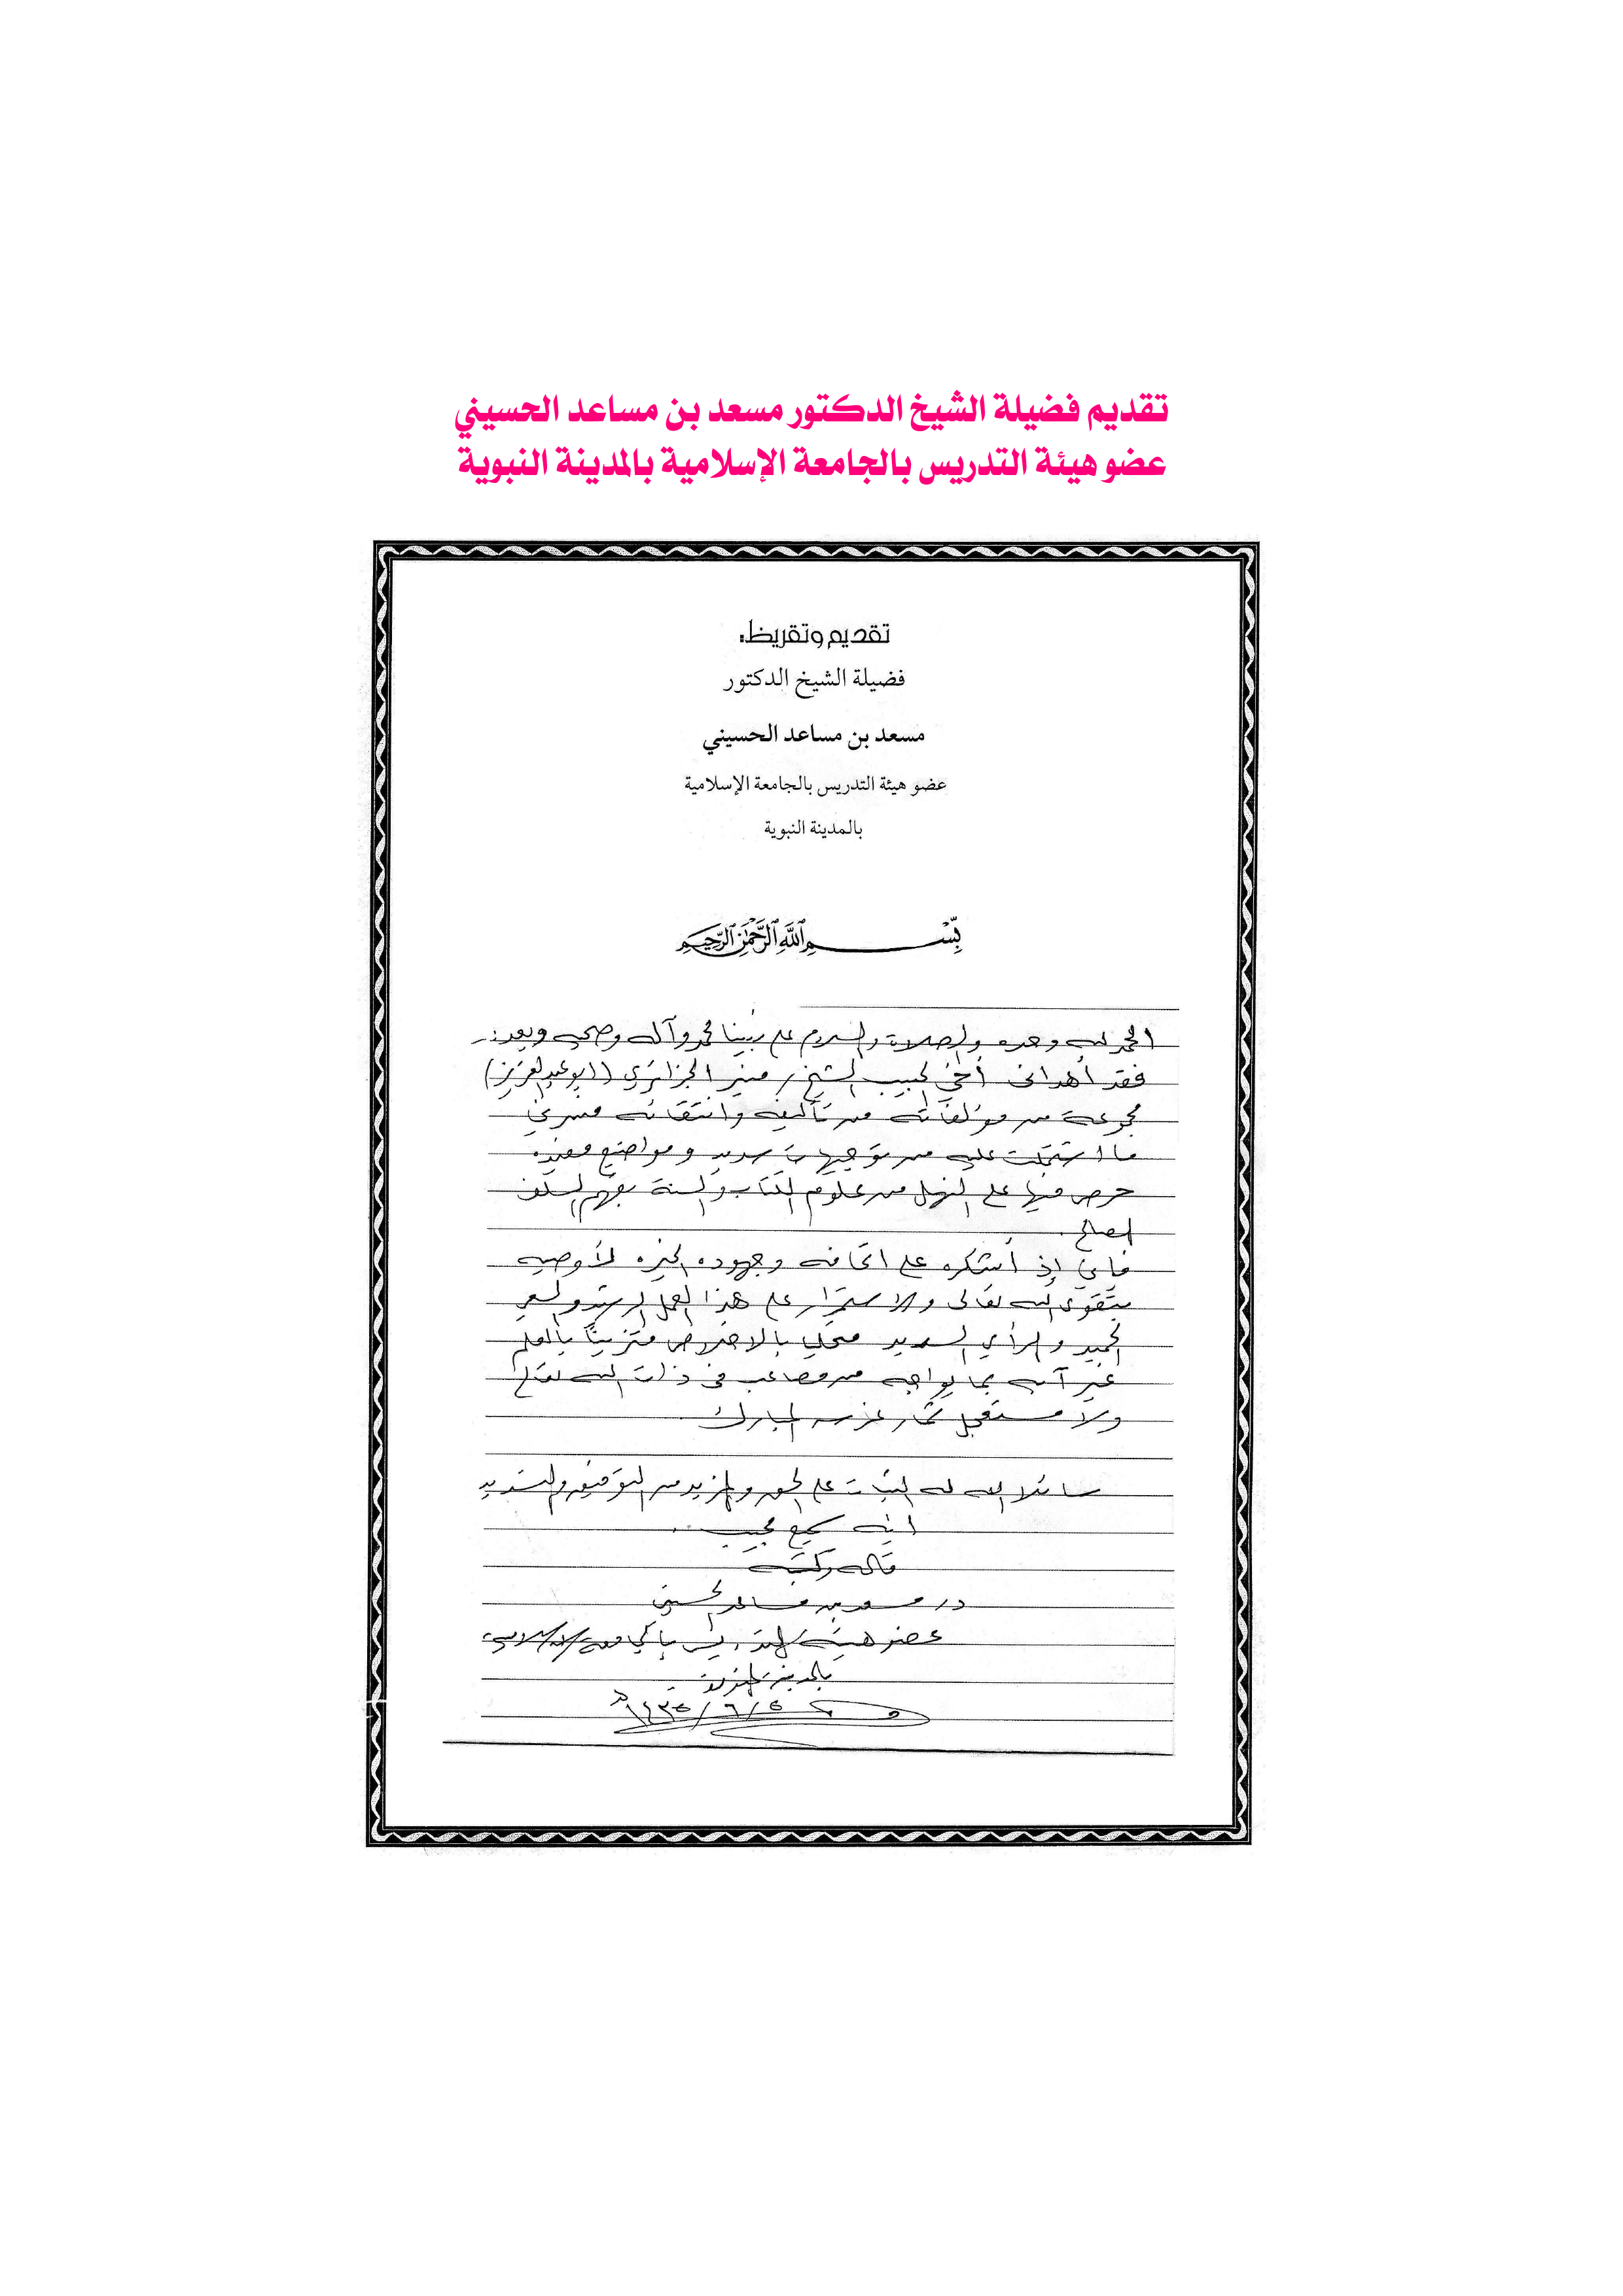 تقديم فضيلة الشيخ الدكتور مسعد بن مساعد الحسيني
عضو هيئة التدريس بالجامعة الإسلامية بالمدينة النبوية
تقديم وتقريظ:
فضيلة الشيخ الدكتور
مسعد بن مساعد الحسيني
عضو هيئة التدريس بالجامعة الإسلامية
بالمدينة النبوية
بِسْمِ اللَّهِ الرَّحْمَٰنِ الرَّحِيمِ
الحمد لله وحده والصلاة والسلام على نبينا محمد وآله وصحبه وبعد:
فقد أهداني أخي الحبيب الشيخ/ منير الجزائري (أبو عبد العزيز)
مجموعة من مؤلفاته من تأليفه وانتقائه فسرني
ما اشتملت عليه من توجيهات سديدة ومواضيع مفيدة
حرص فيها على النهل من علوم الكتاب والسنة بفهم السلف
الصالح.
فإني إذ أشكره على اتحافه وجهوده الخيرة لأوصيه
بتقوى الله تعالى والاستمرار على هذا العمل الرشيد والسعي
الحميد والرأي السديد محلى بالاخلاص متزيناً بالعلم
غير آبه بما يواجه من مصاعب في ذات الله تعالى
ولا مستعجل ثمار غرسه المبارك
سائلا الله له الثبات على الحق والمزيد من التوفيق والتسديد
انه سميع مجيب.
قاله وكتبه
د/ مسعد بن مساعد الحسيني
عضو هيئة التدريس بالجامعة الإسلامية
بالمدينة النبوية